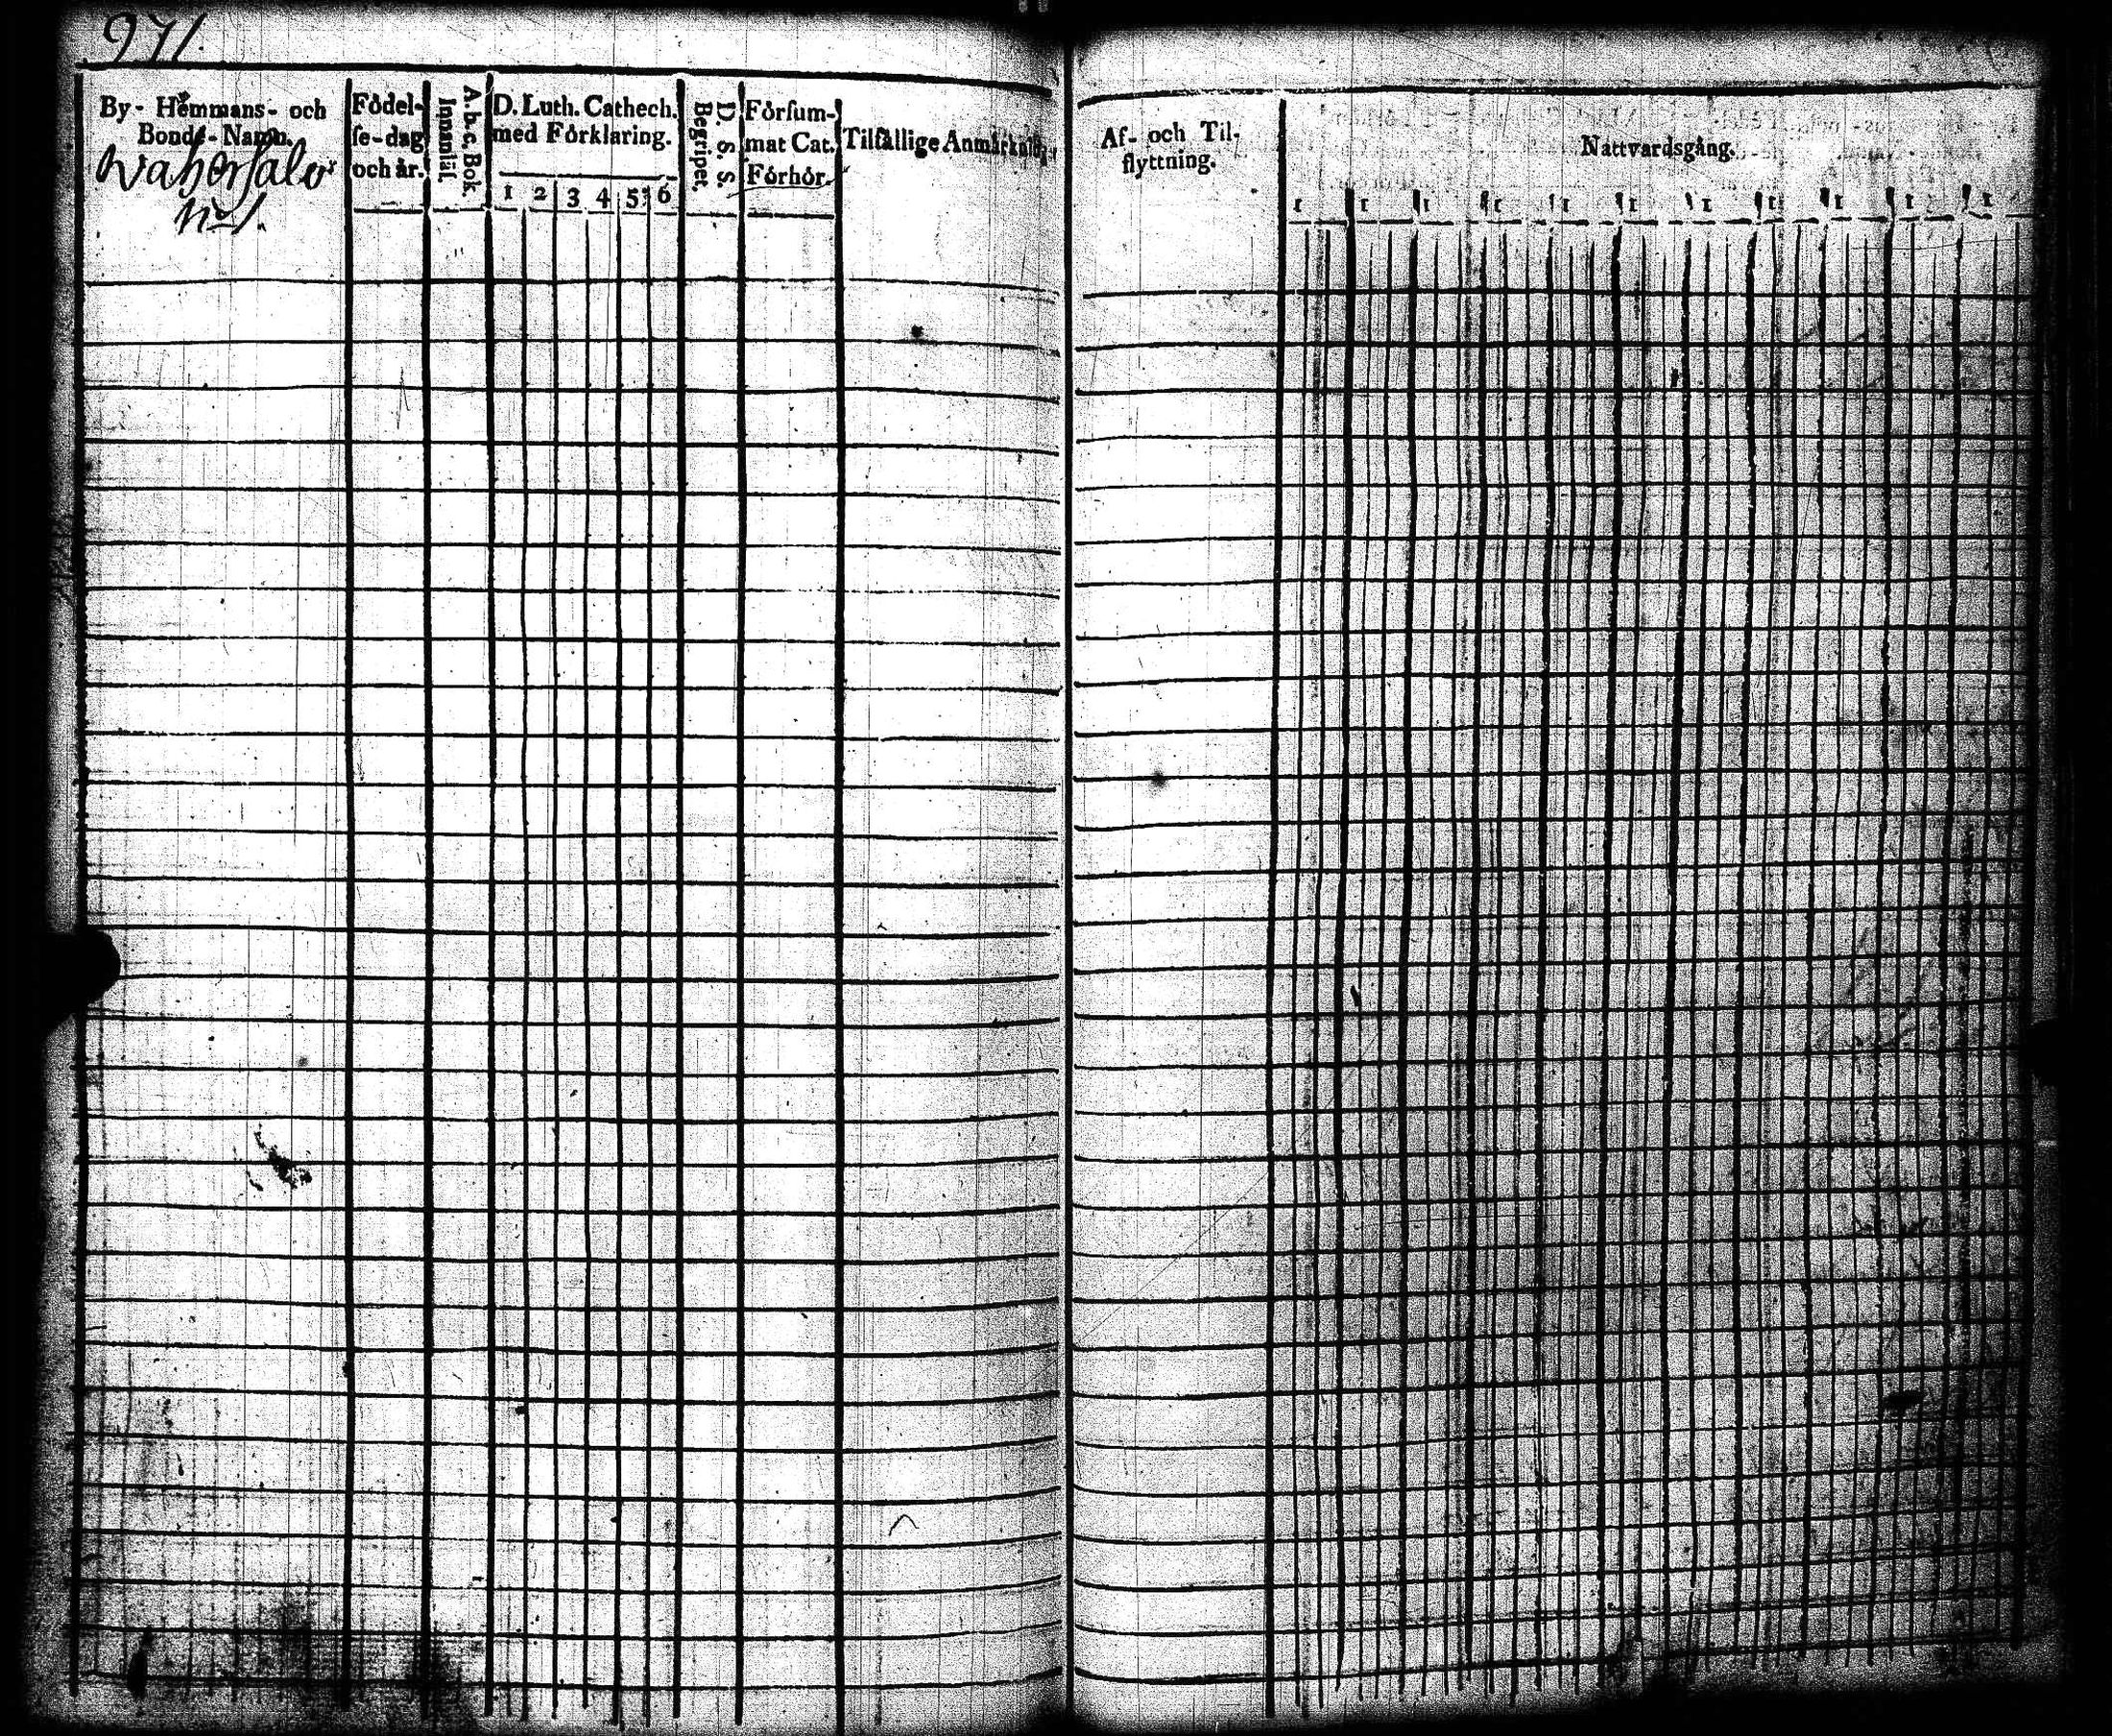 971.
By- Hemmans- och
Bonde-Namn.
Wahersalo
N:o 1.
Födel-
se-dag
och år.
A. b. c. Bok.
Innanläs.
D. Luth. Cathech.
med Förklaring.
1 2 3 4 5 6
D. S. S.
Begripet.
Försum-
mat Cat.
Förhör.
Tilfällige Anmärkning
Af- och Til-
flyttning.
Nattvardsgång.
1 1 1 1 1 1 1 1 1 1 1